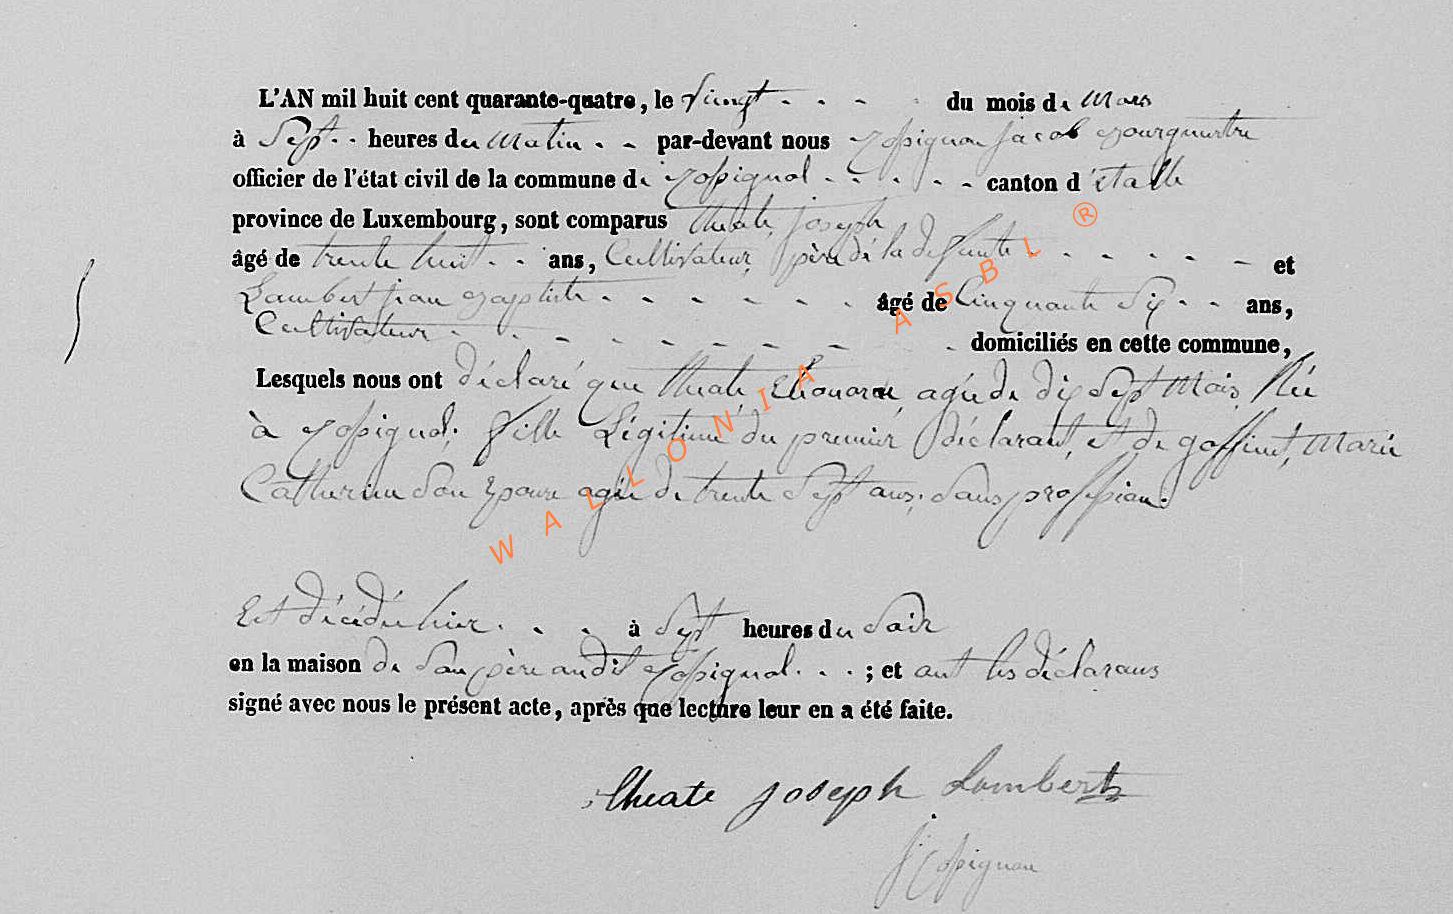 L'AN mil huit cent quarante-quatre, le Vingt . . . . du mois de Mars
à Sept . . heures du Matin . . par-devant nous Rossignon Jacob Bourgmestre
officier de l'état civil de la commune de Rossignol . . . . . canton d'étalle
province de Luxembourg, sont comparus Theate, joseph
âgé de trente huit . . ans, Cultivateur, père de la défunte . . . . . et
Lambert jean Baptiste . . . . . . . âgé de Cinquante Six . . ans,
Cultivateur . . . . . . . . . domiciliés en cette commune,
Lesquels nous ont déclaré que Theate, agée de dix Sept Mois, Née
à Rossignol, fille Légitime du premier déclarant, et de goffinet, Marie
Catherine Son Epouse agée de trente Sept ans, Sans profession.
Est décédée hier . . . à Sept heures du Soir
en la maison de Son père audit Rossignol . . . ; et ont les déclarans
signé avec nous le présent acte, après que lecture leur en a été faite.
Theate joseph Lambert
J Rossignon
W A L L O N I A A S B L ®